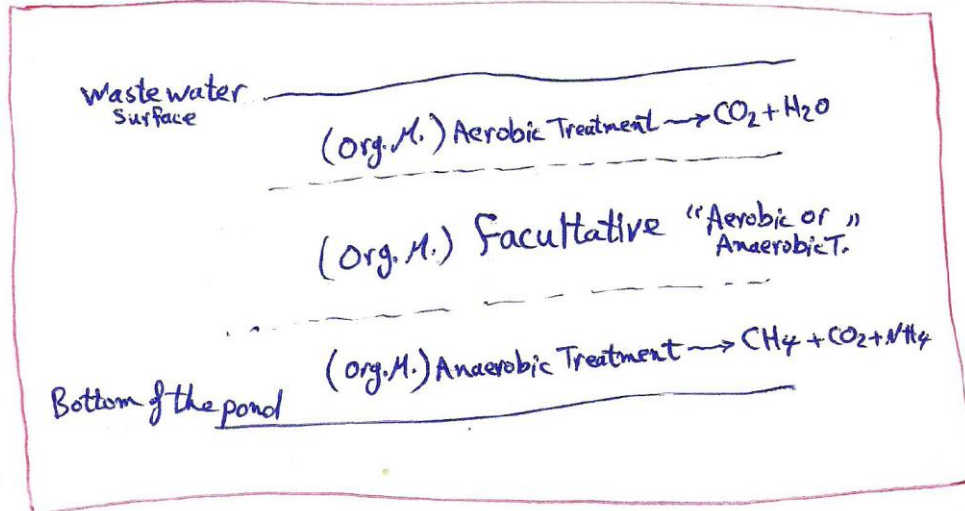 Wastewater
Surface
(Org. M.) Aerobic Treatment → CO2 + H2O
(Org. M.) Facultative "Aerobic or"
Anaerobic T.
(Org. M.) Anaerobic Treatment → CH4 + CO2 + NH4
Bottom of the pond